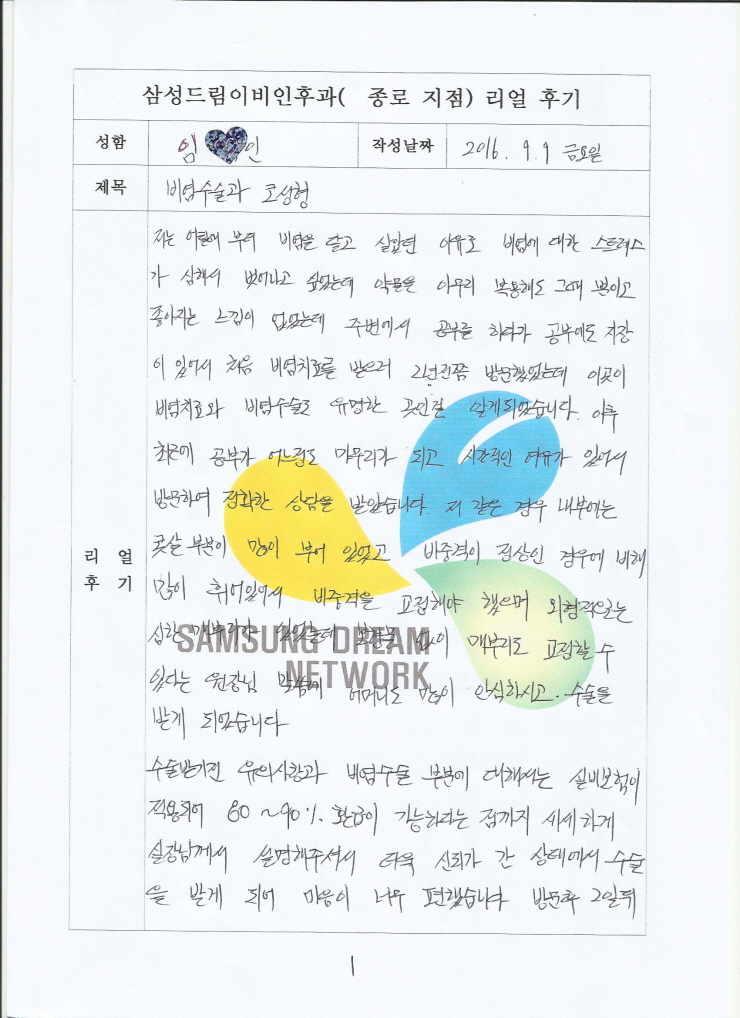 삼성드림이비인후과( 종로 지점) 리얼 후기
성함 임 인 작성날짜 2016. 9. 9 금요일
제목 비염수술과 코성형
리 얼
후 기
저는 어릴때 부터 비염을 달고 살았던 이유로 비염에 대한 스트레스
가 심해서 벗어나고 싶었는데 약물을 아무리 복용해도 그때 뿐이고
좋아지는 느낌이 없었는데 주변에서 공부를 하다가 공부에도 지장
이 있어서 처음 비염치료를 받으러 2년전쯤 방문했었는데 이곳이
비염치료와 비염수술로 유명한 곳인걸 알게되었습니다. 이후
최근에 공부가 어느정도 마무리가 되고 시간적인 여유가 있어서
방문하여 정확한 상담을 받았습니다. 저 같은 경우 내부에는
콧살 부분이 많이 부어 있었고 비중격이 정상인 경우에 비해
많이 휘어있어서 비중격을 교정해야 했으며 외형적으로는
심한 매부리가 있었는데 없이 매부리도 교정할 수
있다는 원장님 말씀에 어머니도 많이 안심하시고. 수술을
받게 되었습니다
SAMSUNG DREAM
NETWORK
수술받기전 유의사항과 비염수술 부분에 대해서는 실비보험이
적용되어 80 ~90%. 환급이 가능하다는 점까지 세세하게
실장님께서 설명해주셔서 더욱 신뢰가 간 상태에서 수술
을 받게 되어 마음이 너무 편했습니다 방문후 2일뒤
1